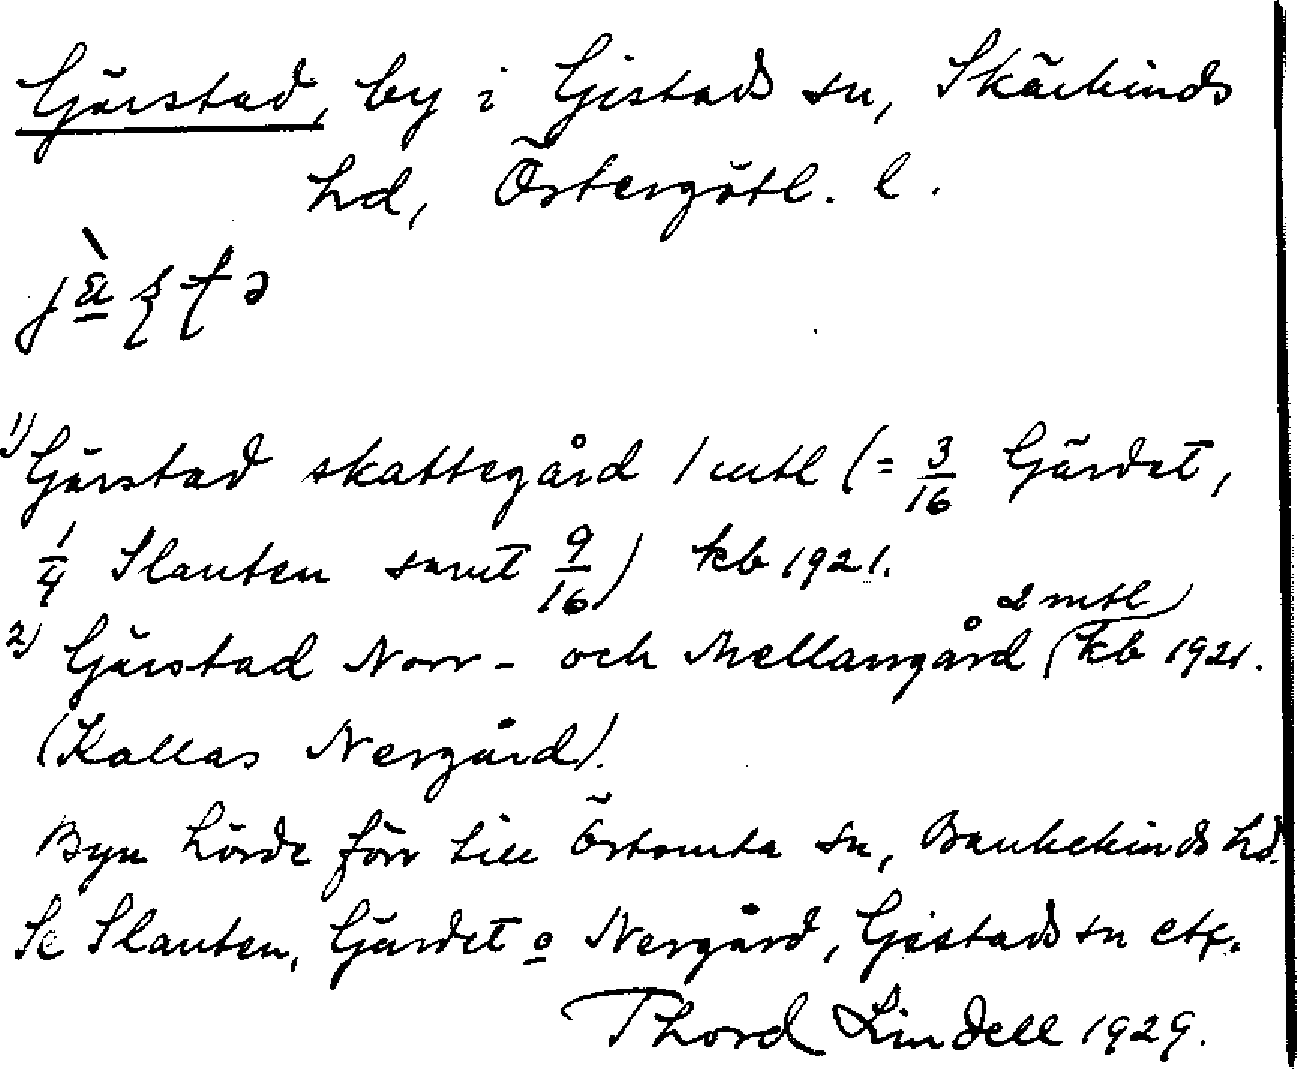 Gärstad, by i Gistads sn, Skärkinds
hd, Östergötl. l.
1) Gärstad skattegård 1 mtl (= 3/16 Gärdet,
1/4 Slanten samt 9/16) kb 1921.
2) Gärstad Norr- och Mellangård (2 mtl) kb 1921.
(Kallas Nergård).
Byn hörde förr till Örtomta sn, Bankekinds hd.
Se Slanten, Gärdet o Nergård, Gistads sn etc.
Thord Lindell 1929.